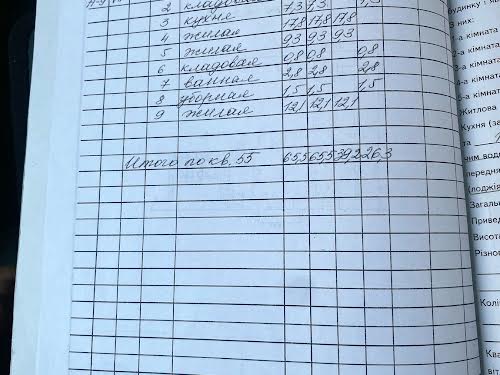 2 кладовая 7,3 7,3
3 кухня 17,8 17,8 17,8
4 жилая 9,3 9,3 9,3
5 жилая
6 кладовая 0,8 0,8 0,8
7 ванная 2,8 2,8 2,8
8 уборная 1,5 1,5 1,5
9 жилая 12,1 12,1 12,1
Итого по кв. 55 65,5 65,5 39,2 26,3
будинку
З них:
кімната
-а кімната
-а кімната
-а кімната
5-а кімната
Житлова
Кухня (за
та
ним водо
передня
(лоджія
Загальн
Привед
Висота
Різно
Колі
Ква